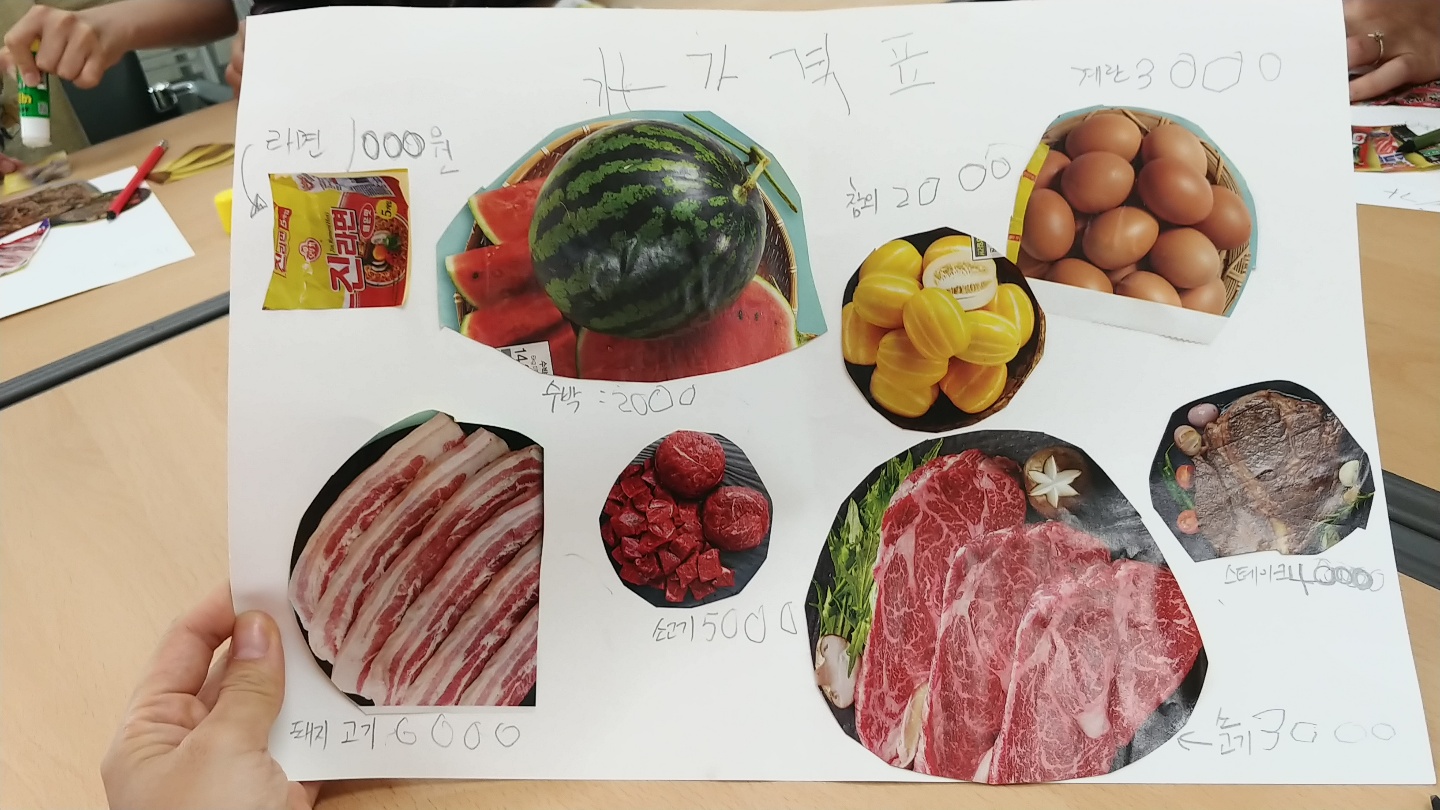 가격표
라면 1000원
계란 3000
참외 2000
진라면
수박 : 2000
스테이크 4000
소고기 5000
돼지 고기 6000
고기 3000